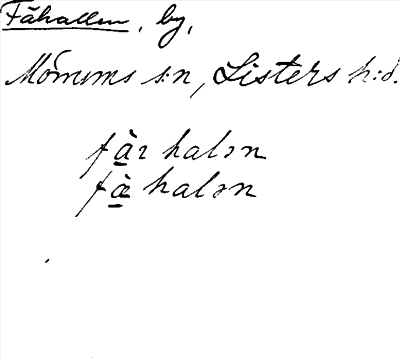 Fähallen, by,
Mörrums s:n, Listers h:d.
fàɪ halən
fæ̀ halən